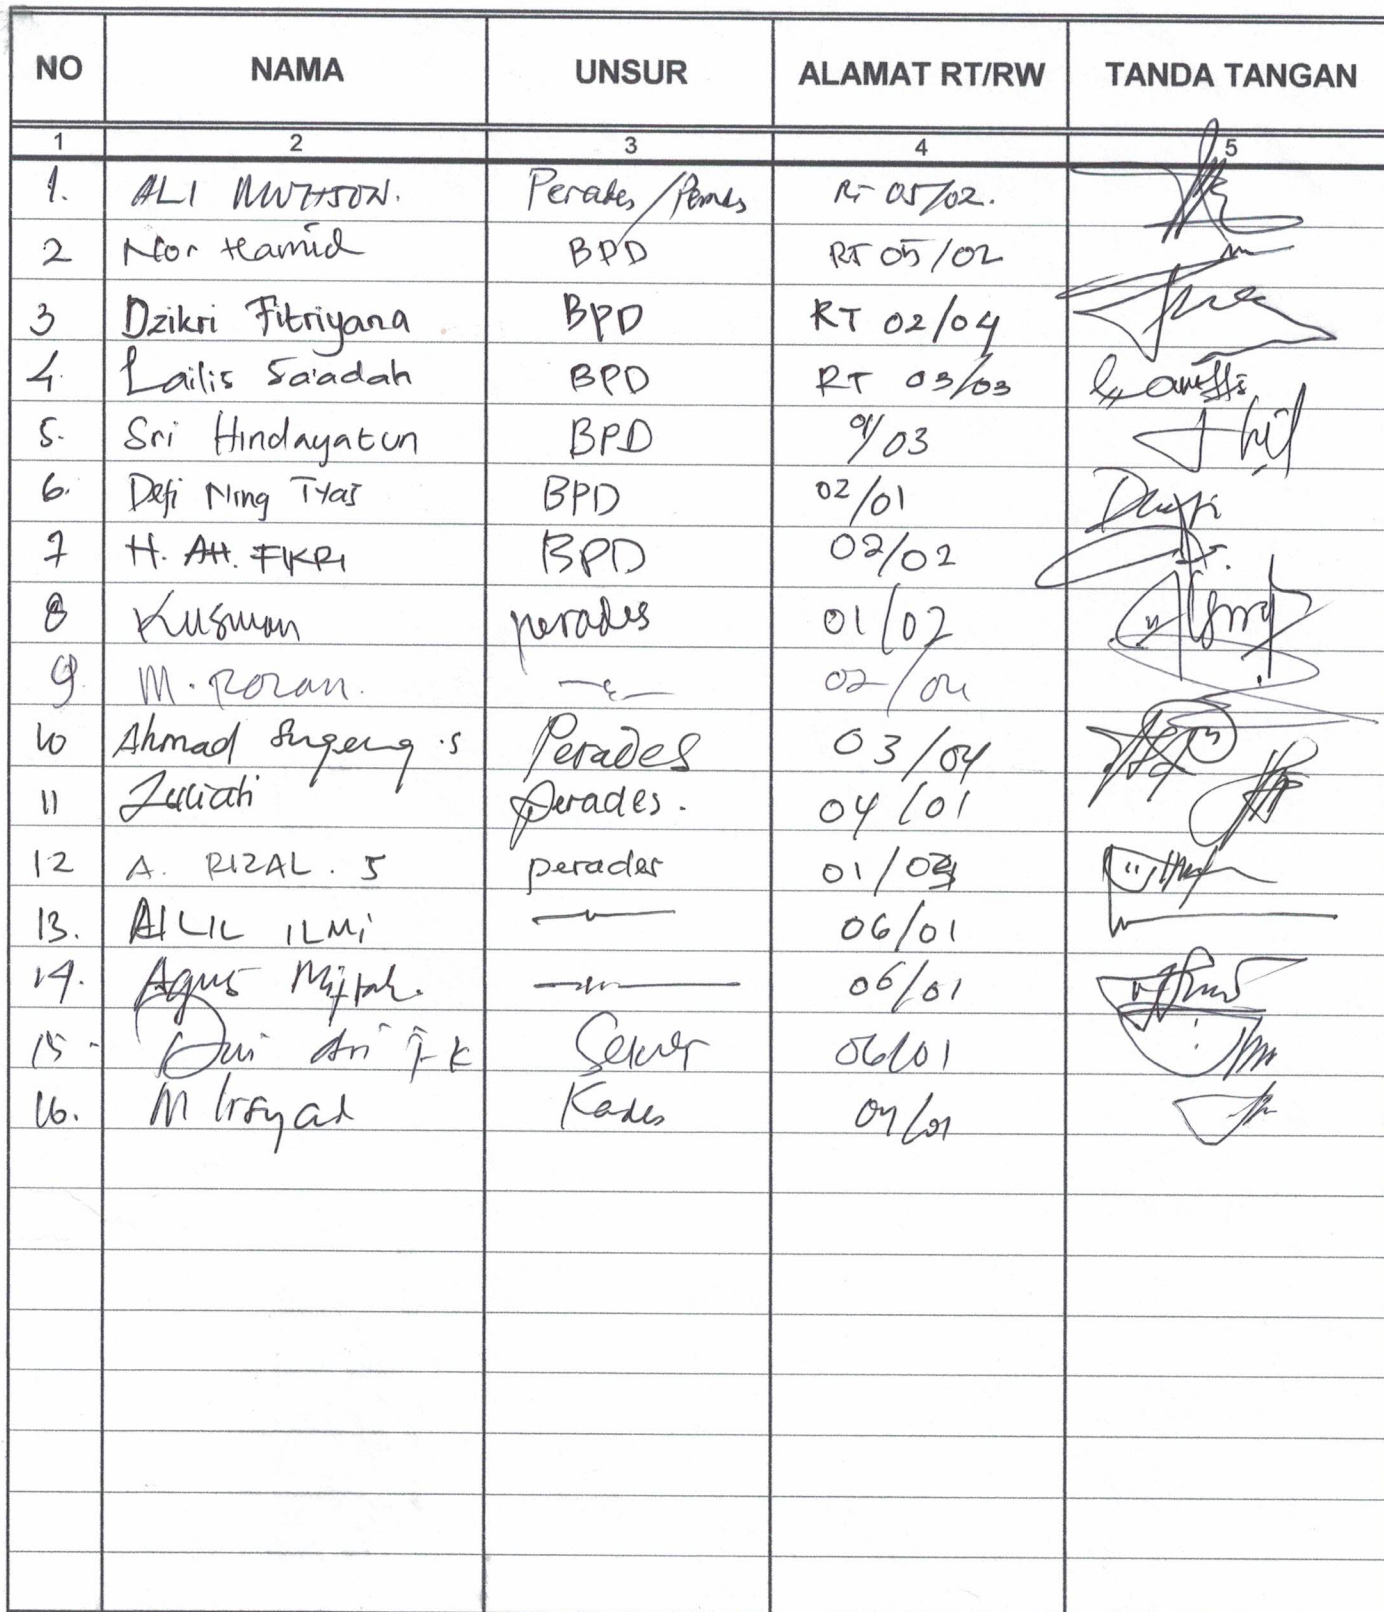 NO NAMA UNSUR ALAMAT RT/RW TANDA TANGAN
1 2 3 4 5
1. ALI MUHSON. Perades / Pemdes RT 05/02.
2 Nor Hamid BPD RT 05/02
3 Dzikri Fitriyana BPD RT 02/04
4. Lailis Sa'adah BPD RT 03/03
5. Sri Hindayatun BPD 9/03
6. Defi Ning Tyas BPD 02/01
7 H. AH. FIKRI BPD 02/02
8 Kusman perades 01/02
9. M. ROZAN. 02/04
10 Ahmad Sugeng .S Perades 03/04
11 Juliati perades. 04/01
12 A. RIZAL. S perades 01/03
13. AILIL ILMI 06/01
14. Agus Miftah. 06/01
15 - Dwi Ari F K 06/01
16. M Irsyad Kades 04/01